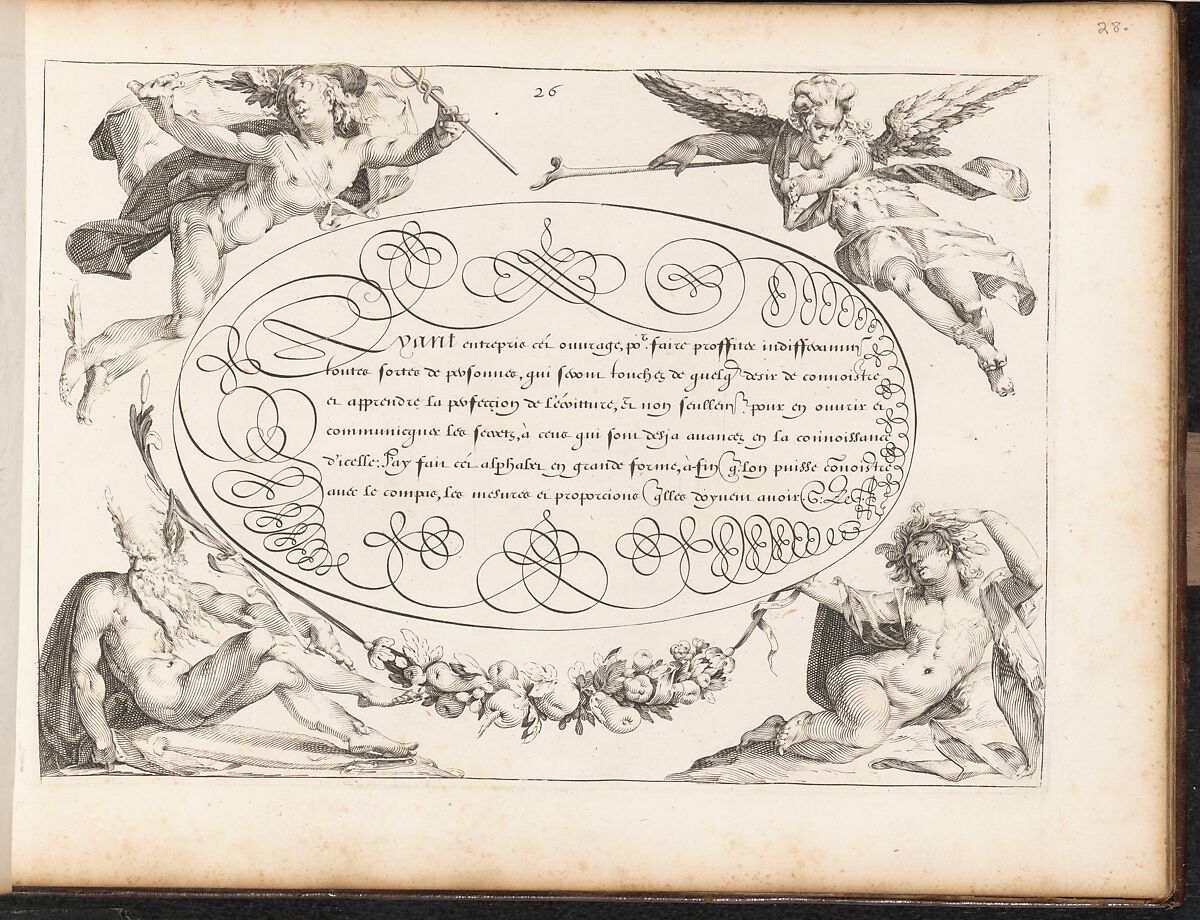 28.
26
Ayant entrepris cet ouurage, po.r faire proffiter indifferamm.t
toutes sortes de personnes, qui seront touchez de quelq desir de connoistre
et apprendre la perfeccion de l'ecritture, & non seullem.t pour en ouurir et
communicquer les secretz, à ceus qui sont desja auancez en la connoissance
d'icelle: J'ay fait cet alphabet en grande forme, à-fin q lon puisse connoistre
auec le compas, les mesures et proporcions qlles doyuent auoir